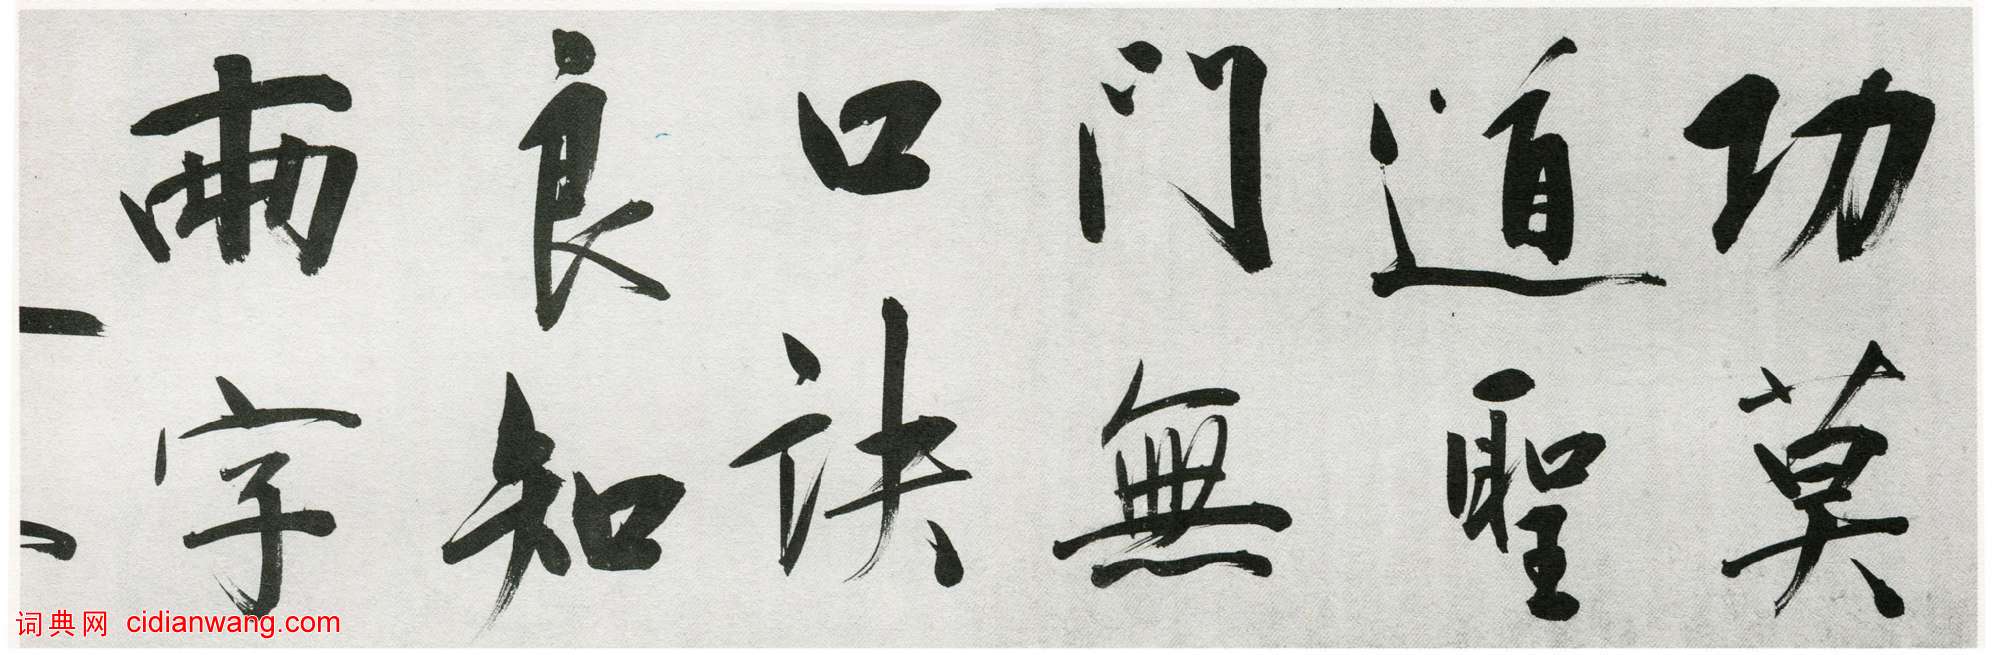 功莫
道聖
門無
口訣
良知
兩字
词典网 cidianwang.com